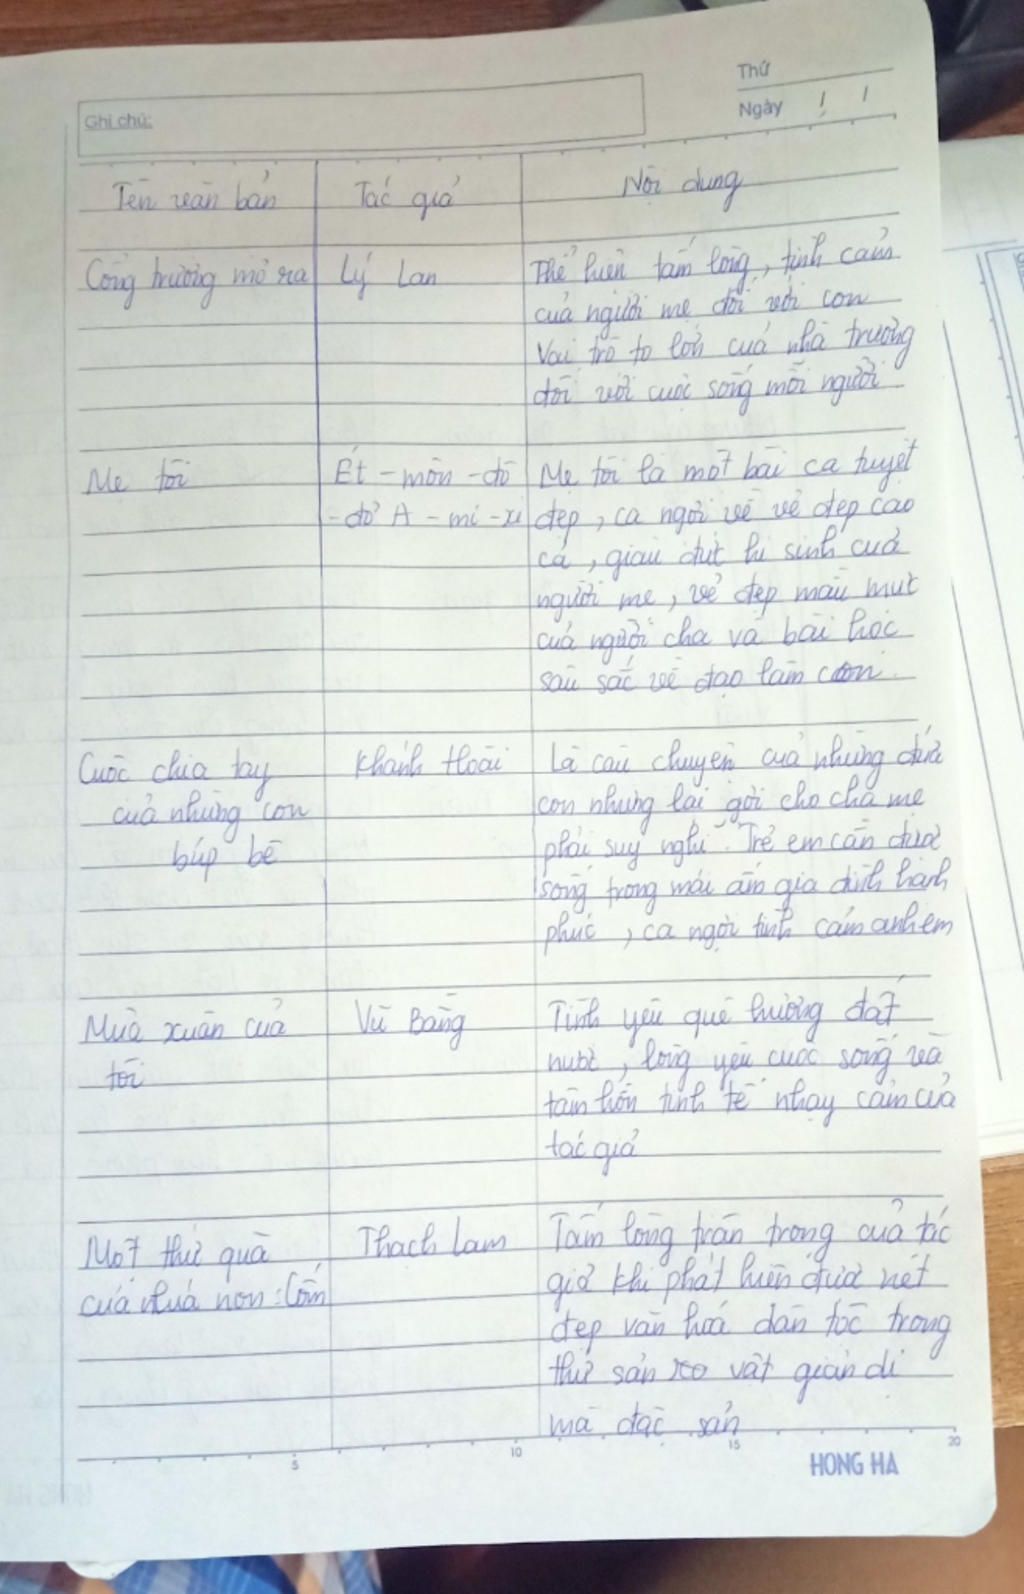 Thứ
Ghi chú:
Ngày / /
Tên văn bản Tác giả Nội dung
Cổng trường mở ra Lý Lan Thể hiện tấm lòng, tình cảm
của người mẹ đối với con
Vai trò to lớn của nhà trường
đối với cuộc sống mỗi người
Mẹ tôi Ét-môn-đô Mẹ tôi là một bài ca tuyệt
-đơ A-mi-xi đẹp, ca ngợi về vẻ đẹp cao
cả, giàu đức hi sinh của
người mẹ, vẻ đẹp mẫu mực
của người cha và bài học
sâu sắc về đạo làm con.
Cuộc chia tay Khánh Hoài Là câu chuyện của những đứa
của những con con nhưng lại gợi cho cha mẹ
búp bê phải suy nghĩ. Trẻ em cần được
sống trong mái ấm gia đình hạnh
phúc, ca ngợi tình cảm anh em
Mùa xuân của Vũ Bằng Tình yêu quê hương đất
tôi nước, lòng yêu cuộc sống và
tâm hồn tinh tế nhạy cảm của
tác giả
Một thứ quà Thạch Lam Tấm lòng trân trọng của tác
của lúa non: Cốm giả khi phát hiện được nét
đẹp văn hoá dân tộc trong
thứ sản vật giản dị
mà đặc sản
5 10 15 20
HONG HA